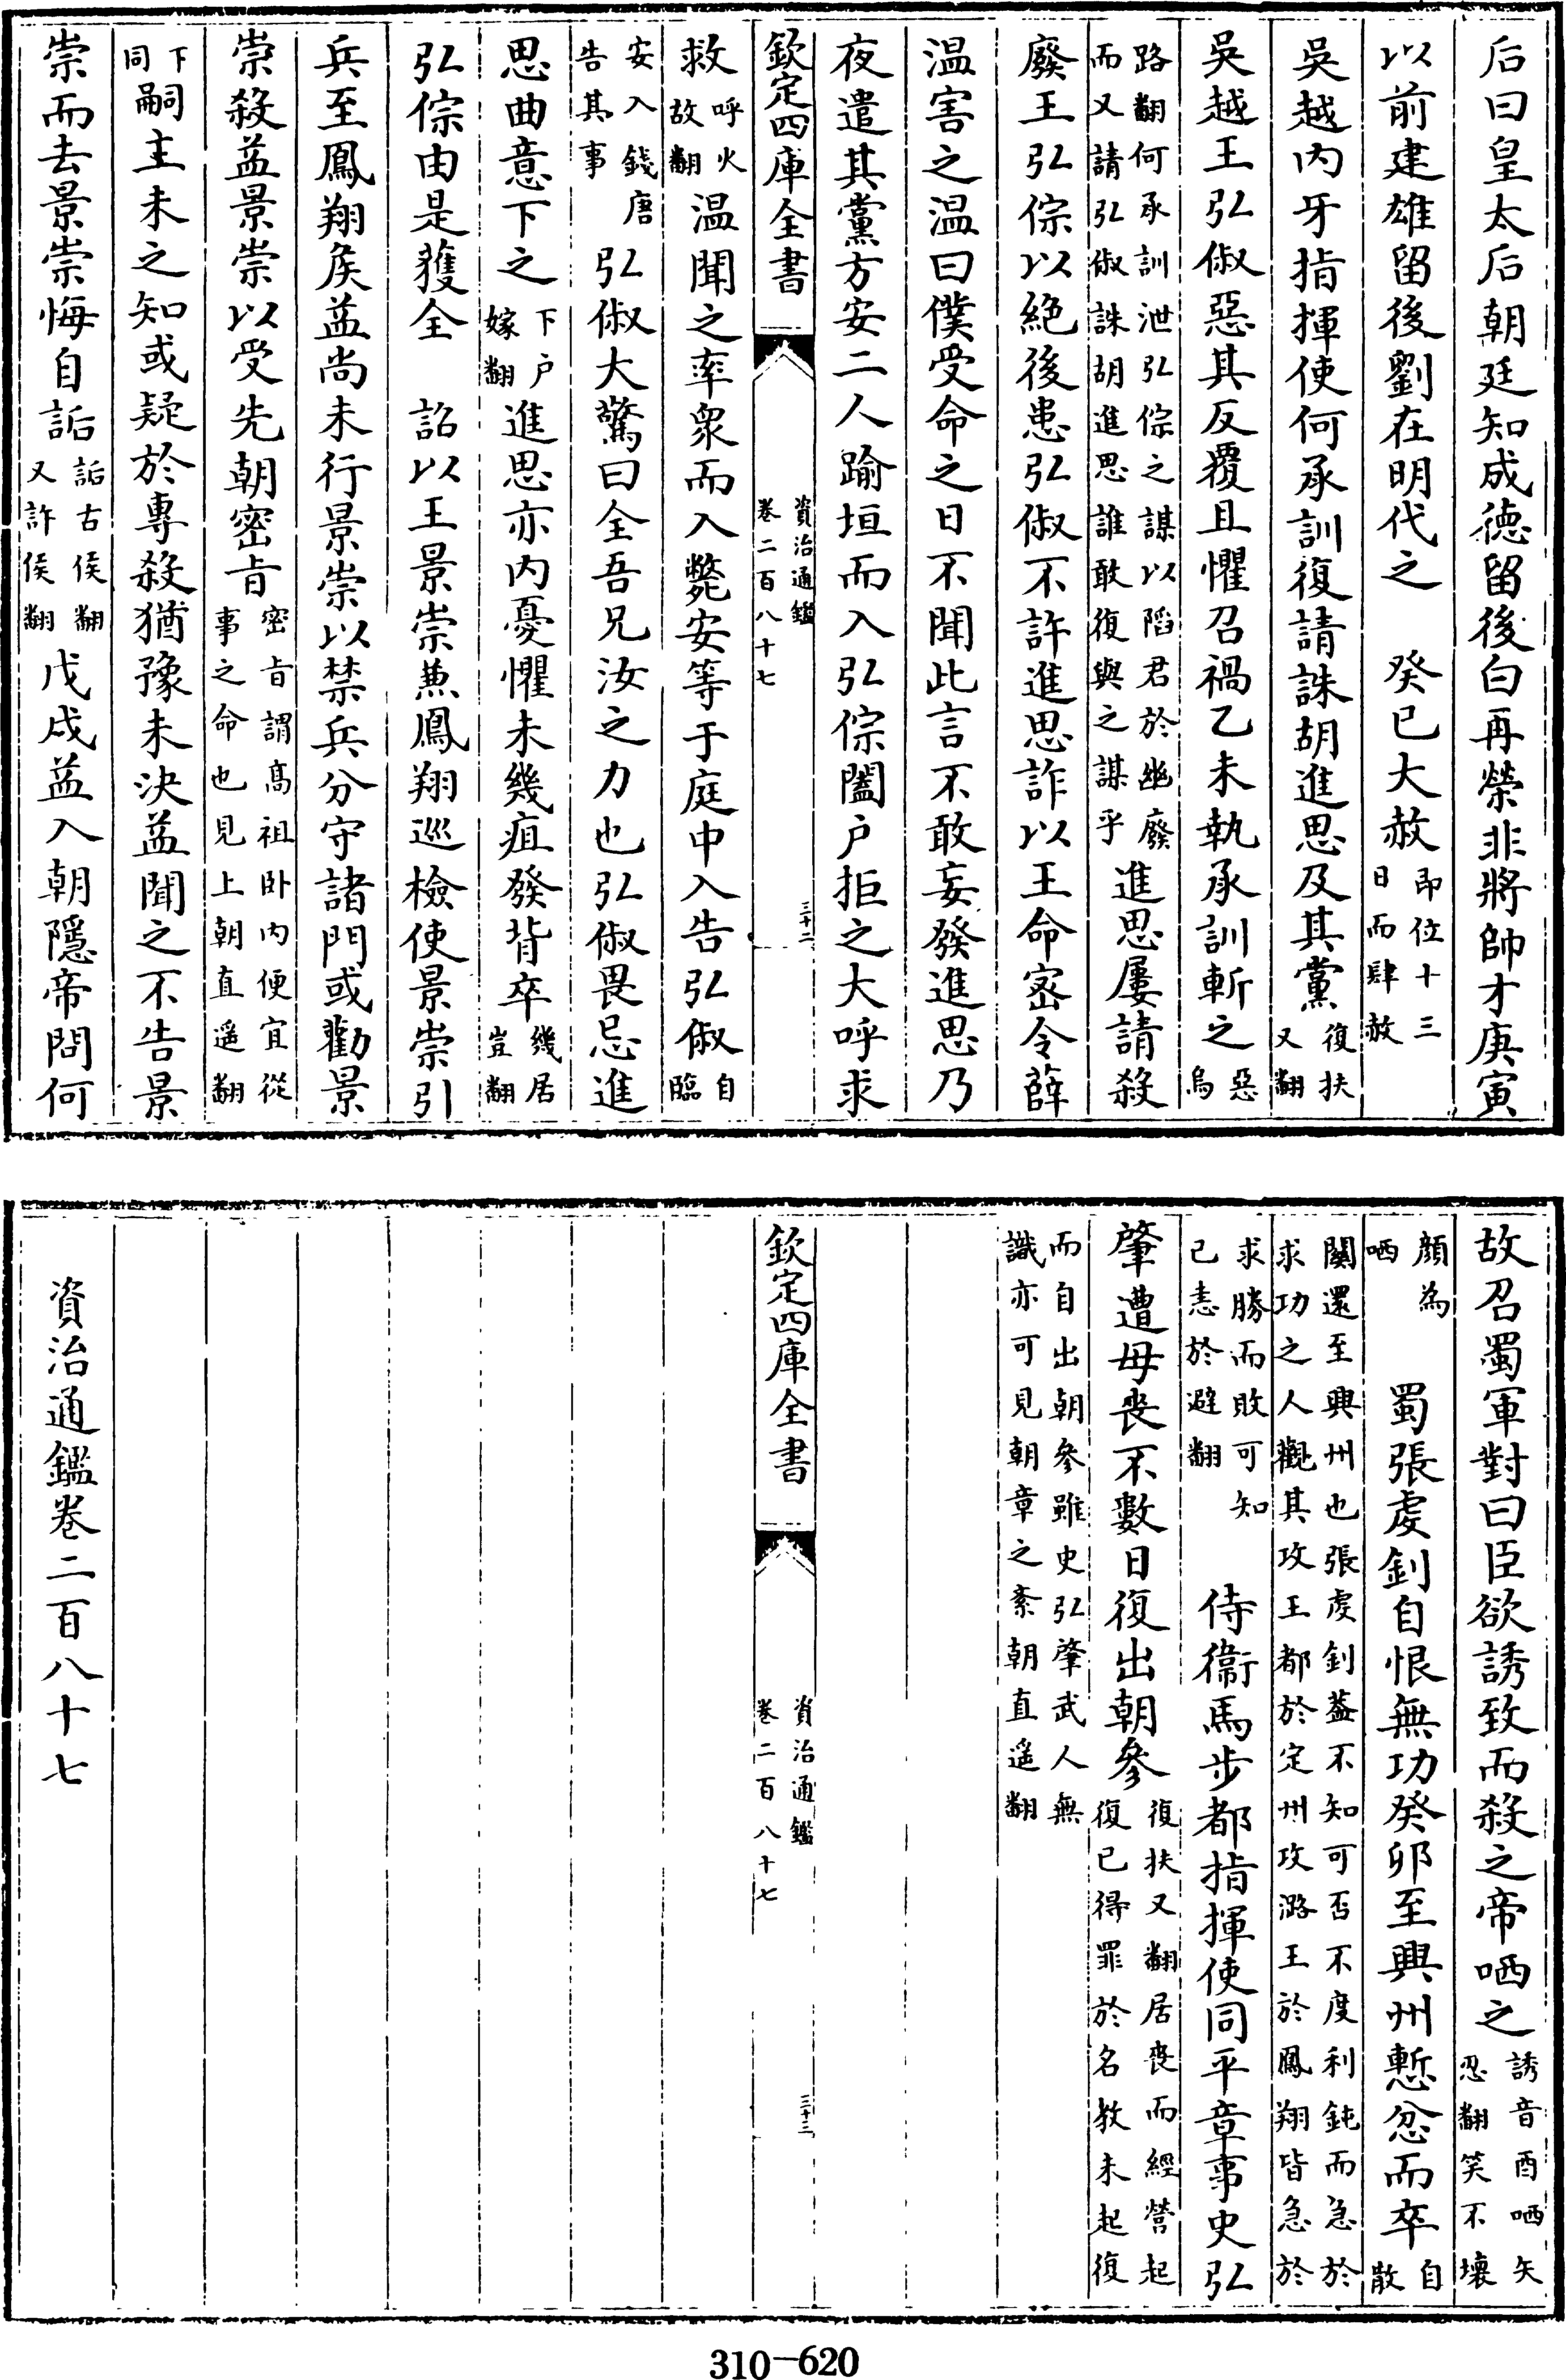 后曰皇太后朝廷知成德留後白再榮非將帥才庚寅
以前建雄留後劉在明代之　癸巳大赦即位十三日而肆赦
吳越內牙指揮使何承訓復請誅胡進思及其黨復扶又翻
吳越王弘俶惡其反覆且懼召禍乙未執承訓斬之惡烏
路翻何承訓泄弘倧之謀以䧟君於幽廢而又請弘俶誅胡進思誰敢復與之謀乎進思屢請殺
廢王弘倧以絶後患弘俶不許進思詐以王命宻令薛
温害之温曰僕受命之日不聞此言不敢妄發進思乃
夜遣其黨方安二人踰垣而入弘倧闔户拒之大呼求
欽定四庫全書
資治通鑑
卷二百八十七
三十二
救呼火故翻温聞之率衆而入斃安等于庭中入告弘俶自臨
安入錢唐告其事弘俶大驚曰全吾兄汝之力也弘俶畏忌進
思曲意下之下户嫁翻進思亦內憂懼未幾疽發背卒幾居豈翻
弘倧由是獲全　詔以王景崇兼鳳翔巡檢使景崇引
兵至鳳翔矦益尚未行景崇以禁兵分守諸門或勸景
崇殺益景崇以受先朝密旨密旨謂髙祖卧內便宜從事之命也見上朝直遥翻
下同嗣主未之知或疑於專殺猶豫未決益聞之不告景
崇而去景崇悔自詬詬古侯翻又許侯翻戊戌益入朝隱帝問何
故召蜀軍對曰臣欲誘致而殺之帝哂之誘音酉哂矢忍翻笑不壞
顔為哂　蜀張虔釗自恨無功癸卯至興州慙忿而卒自散
關還至興州也張虔釗葢不知可否不度利鈍而急於求功之人觀其攻王都於定州攻潞王於鳳翔皆急於
求勝而敗可知已恚於避翻　侍衞馬步都指揮使同平章事史弘
肇遭母喪不數日復出朝參復扶又翻居喪而經營起復已得罪於名教未起復
而自出朝參雖史弘肇武人無識亦可見朝章之紊朝直遥翻
欽定四庫全書
資治通鑑
卷二百八十七
三十三
資治通鑑卷二百八十七
310-620